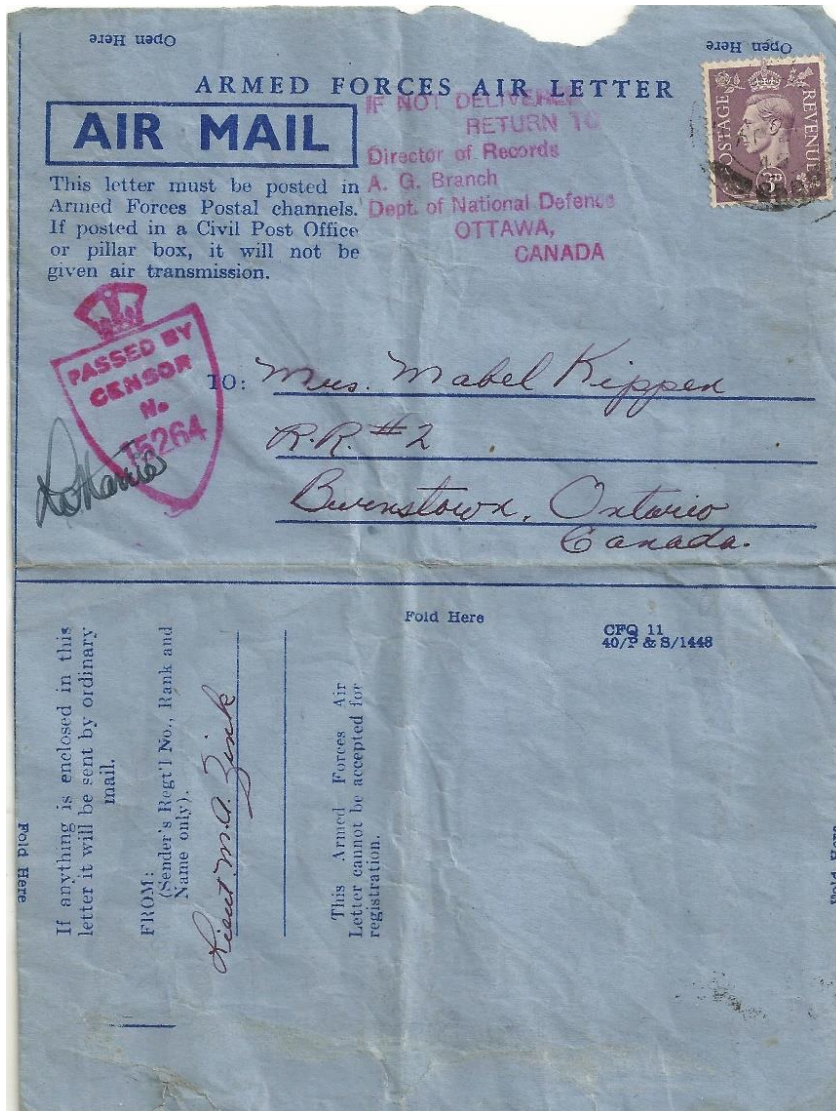 Open Here
Open Here
ARMED FORCES AIR LETTER
AIR MAIL
This letter must be posted in
Armed Forces Postal channels.
If posted in a Civil Post Office
or pillar box, it will not be
given air transmission.
IF NOT DELIVERED
RETURN TO
Director of Records
A. G. Branch
Dept. of National Defence
OTTAWA,
CANADA
POSTAGE
REVENUE
3D
PASSED BY
CENSOR
No
15264
TO: Mrs. Mabel Kippen
R.R. #2
Burnstown, Ontario
Canada.
Fold Here
CFQ 11
40/P & S/1448
If anything is enclosed in this
letter it will be sent by ordinary
mail.
FROM:
(Sender's Regt'l No., Rank and
Name only).
Lieut. M.A. Zink
This Armed Forces Air
Letter cannot be accepted for
registration.
Fold Here
Fold Here